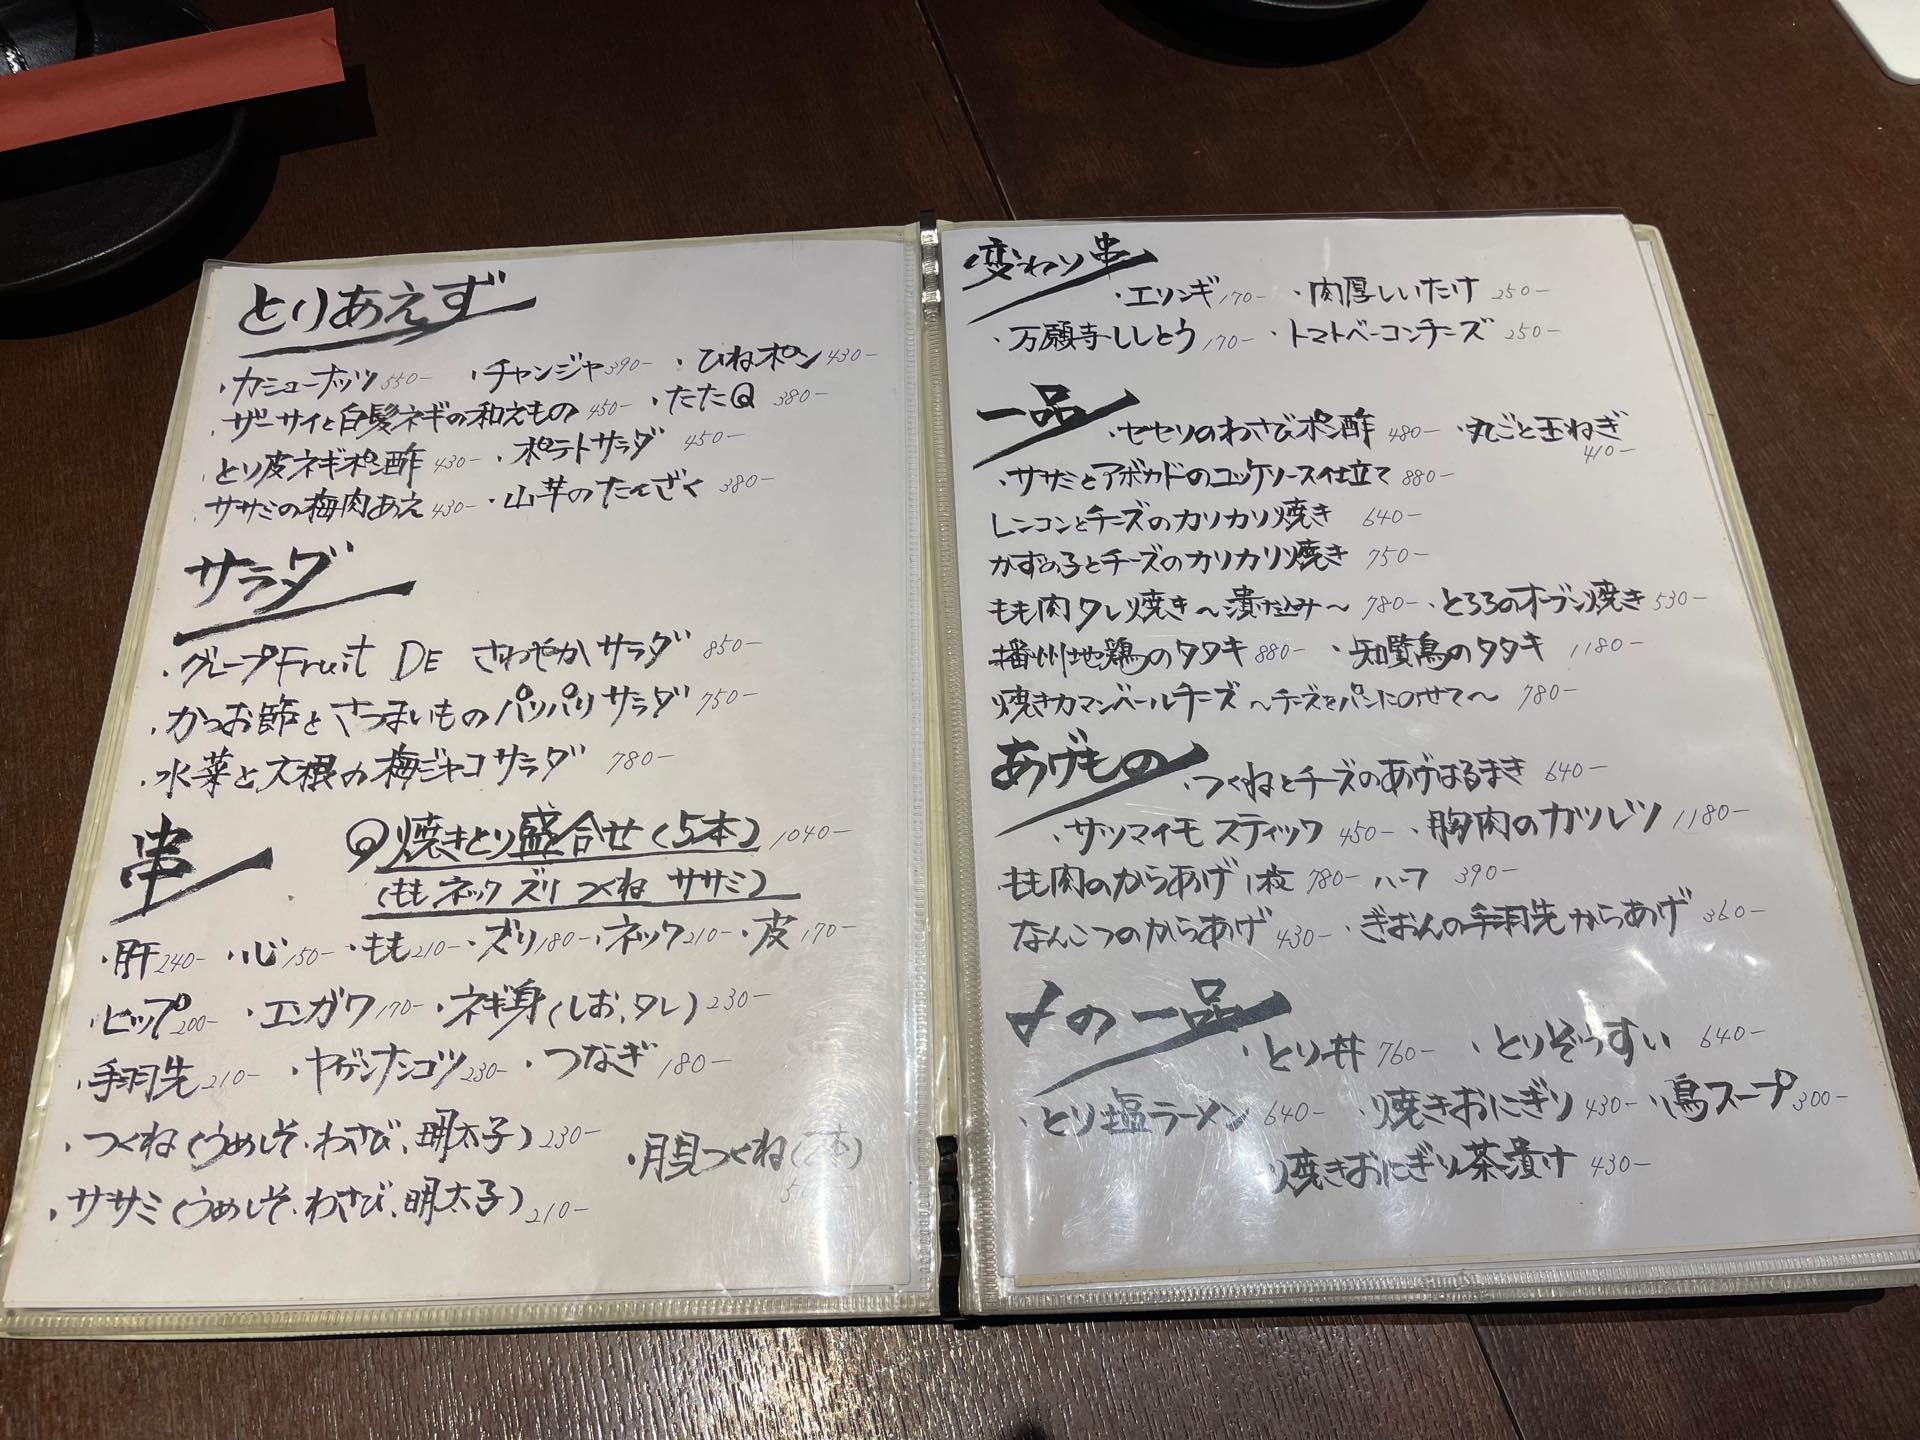 とりあえず
・カシューナッツ 550- ・チャンジャ 390- ・ひねポン 430-
・ザーサイと白髪ネギの和えもの 450- ・たたQ 380-
・とり皮ネギポン酢 430- ・ポテトサラダ 450-
・ササミの梅肉あえ 430- ・山芋のたんざく 380-
サラダ
・グレープFruit DE さわやかサラダ 850-
・かつお節とさつまいものパリパリサラダ 750-
・水菜と大根の梅ジャコサラダ 780-
串
焼きとり盛合せ(5本) 1040-
(もも ネック ズリ つくね ササミ)
・肝 240- ・心 150- ・もも 210- ・ズリ 180- ・ネック 210- ・皮 170-
・ヒップ 200- ・エンガワ 170- ・ネギ身(しお、タレ) 230-
・手羽先 210- ・ヤゲンナンコツ 230- ・つなぎ 180-
・つくね(うめしそ・わさび、明太子) 230-
・月見つくね(2本)
・ササミ(うめしそ・わさび、明太子) 210-
変わり串
・エリンギ 170- ・肉厚しいたけ 250-
・万願寺ししとう 170- ・トマトベーコンチーズ 250-
一品
・セセリのわさびポン酢 480- ・丸ごと玉ねぎ
410-
・ササミとアボカドのユッケソース仕立て 880-
レンコンとチーズのカリカリ焼き 640-
かずの子とチーズのカリカリ焼き 750-
もも肉タレ焼き〜漬け込み〜 780- ・とろろのオーブン焼き 530-
播州地鶏のタタキ 880- ・知覧鳥のタタキ 1180-
焼きカマンベールチーズ 〜チーズをパンにのせて〜 780-
あげもの
・つくねとチーズのあげはるまき 640-
・サツマイモ スティック 450- ・胸肉のカツレツ 1180-
もも肉のからあげ 1枚 780- ハーフ 390-
なんこつのからあげ 430- ・ぎおんの手羽先からあげ 360-
〆の一品
・とり丼 760- ・とりぞうすい 640-
・とり塩ラーメン 640- ・焼きおにぎり 430- ・鳥スープ 300-
焼きおにぎり茶漬け 430-